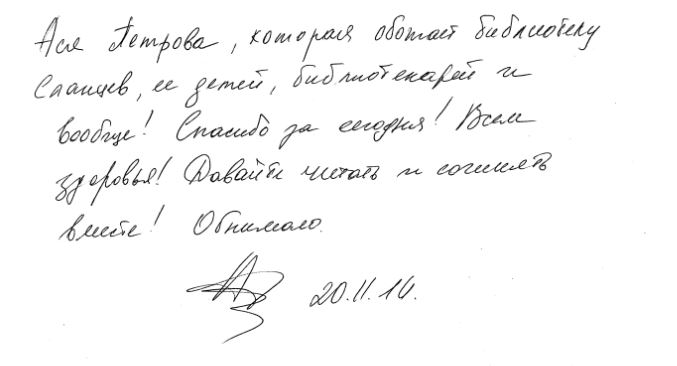 Ася Петрова, которая обожает библиотеку
Сланцев, ее детей, библиотекарей и
вообще! Спасибо за сегодня! Всем
здоровья! Давайте читать и сочинять
вместе! Обнимаю.
20.11.16.